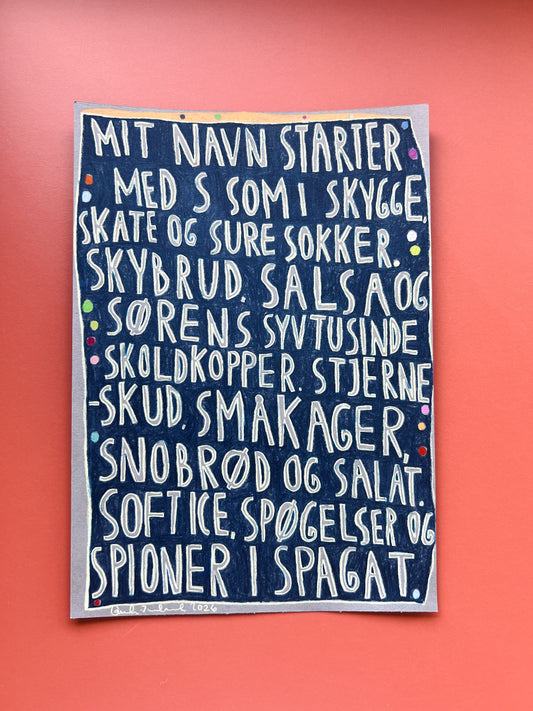 MIT NAVN STARTER
MED S SOM I SKYGGE,
SKATE OG SURE SOKKER.
SKYBRUD, SALSA OG
SØRENS SYVTUSINDE
SKOLDKOPPER. STJERNE
-SKUD, SMÅKAGER,
SNOBRØD OG SALAT.
SOFTICE, SPØGELSER OG
SPIONER I SPAGAT
2026